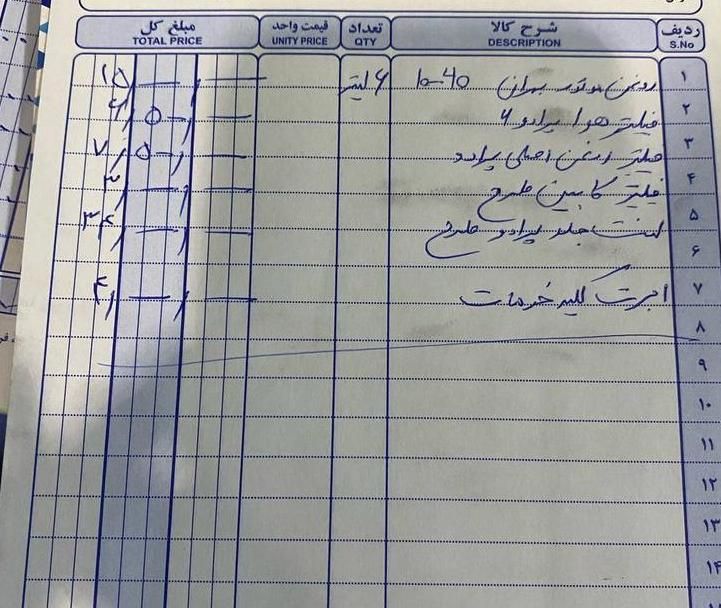 ردیف شرح کالا تعداد قیمت واحد مبلغ کل
S.No DESCRIPTION QTY UNITY PRICE TOTAL PRICE
۱ روغن موتور بهران 10-40 ۶ لیتر ۱۵/—/—
۲ فیلتر هوا پرادو ۴ /۵۰۰/—
۳ فیلتر روغن اصلی پرادو ۷/۵۰۰/—
۴ فیلتر کابین طرح ۳/—/—
۵ لنت جلو پرادو طرح ۳۴/—/—
۶
۷ اجرت کلیه خدمات ۴/—/—
۸
۹
۱۰
۱۱
۱۲
۱۳
۱۴